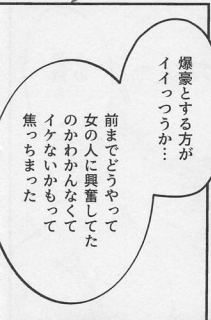 爆豪とする方が
イイっつうか…
前までどうやって
女の人に興奮してた
のかわかんなくて
イケないかもって
焦っちまった